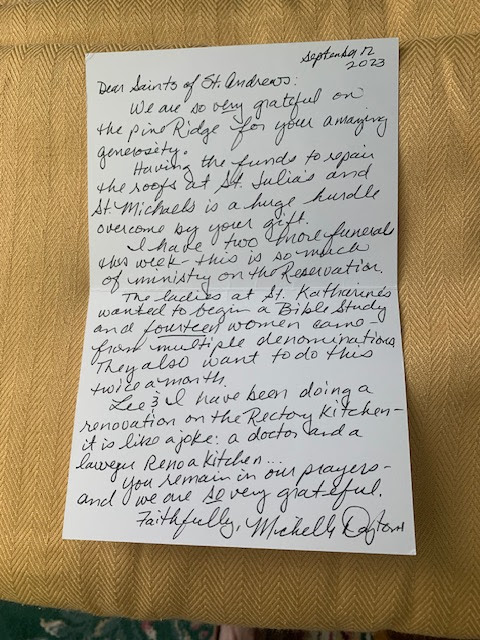 September 12
2023
Dear Saints of St. Andrews:
We are so very grateful on
the Pine Ridge for your amazing
generosity.
Having the funds to repair
the roofs at St. Julia's and
St. Michaels is a huge hurdle
overcome by your gift.
I have two more funerals
this week - this is so much
of ministry on the Reservation.
The ladies at St. Katharine's
wanted to begin a Bible Study
and fourteen women came -
from multiple denominations.
They also want to do this
twice a month.
Lee & I have been doing a
renovation on the Rectory Kitchen -
it is like a joke: a doctor and a
lawyer Reno a Kitchen...
You remain in our prayers -
and we are so very grateful.
Faithfully, Michelle Dayton